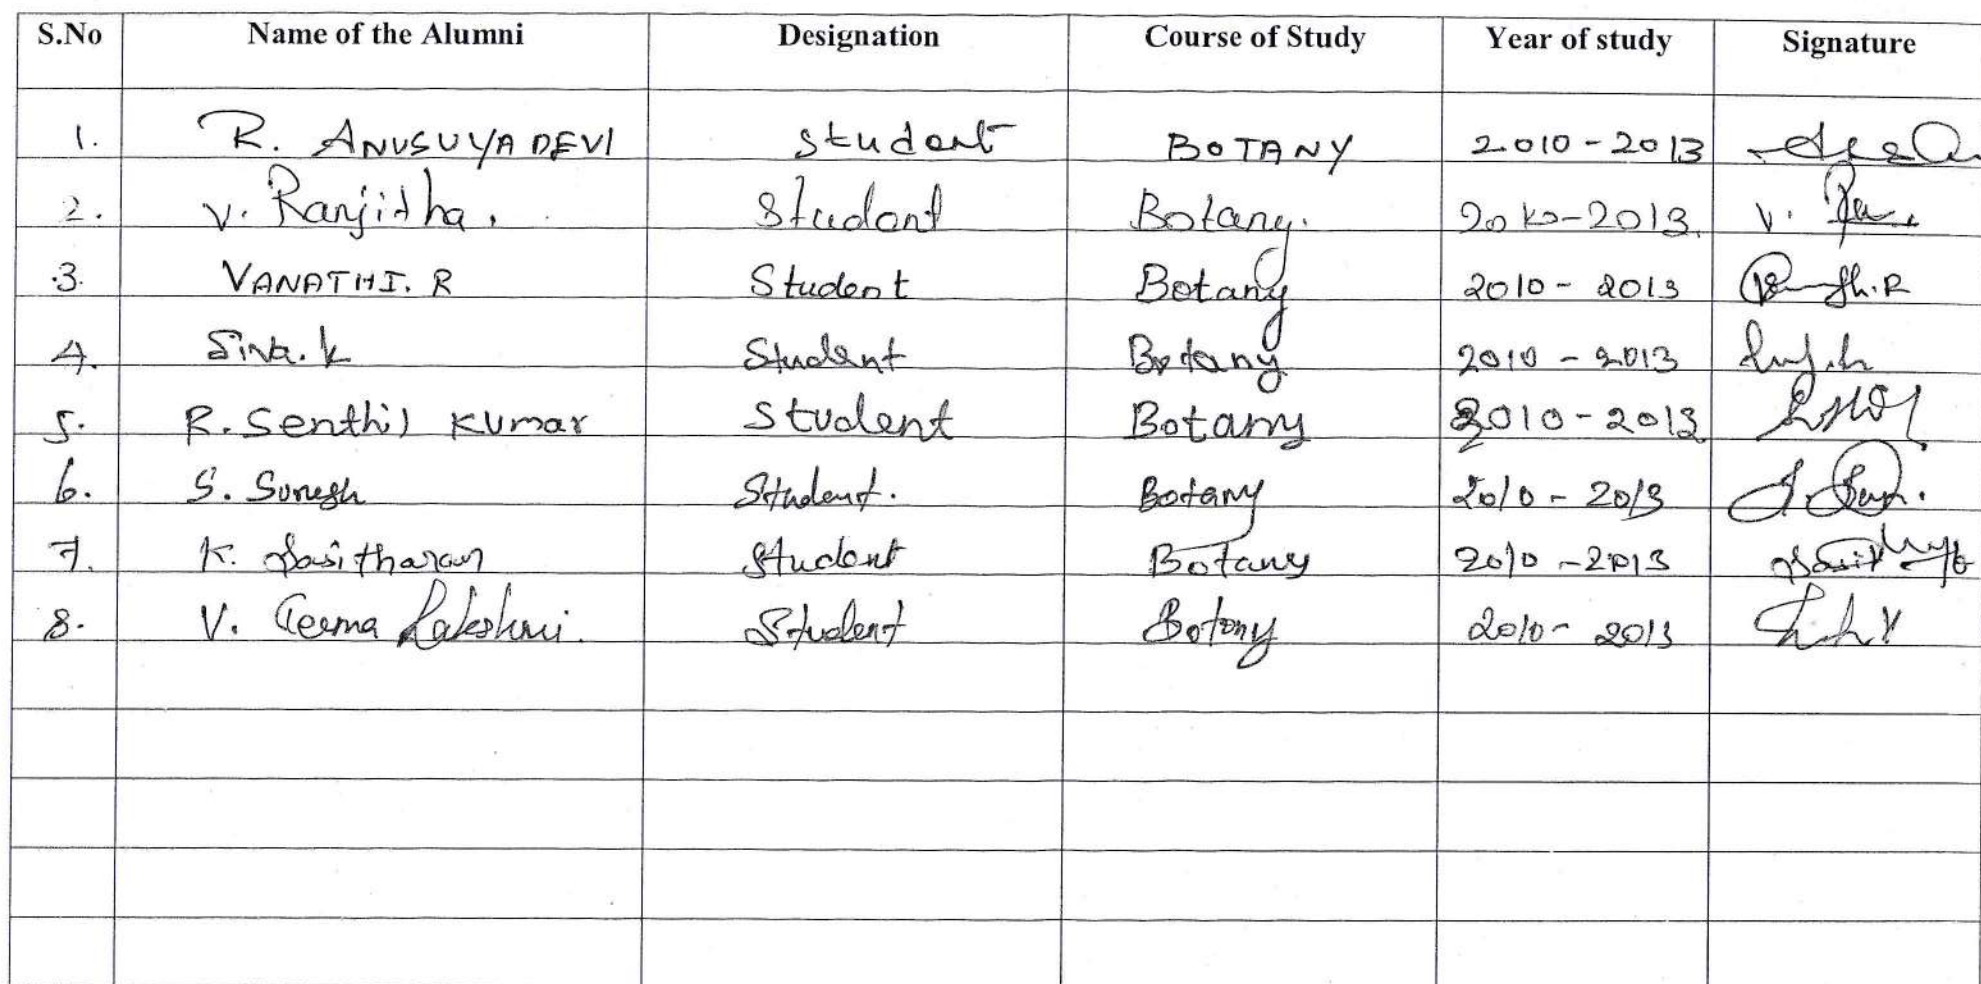 S.No Name of the Alumni Designation Course of Study Year of study Signature
1. R. ANUSUYA DEVI Student BOTANY 2010-2013
2. V. Ranjitha. Student Botany. 2010-2013. V.
3. VANATHI. R Student Botany 2010-2013
4. Siva. K Student Botany 2010-2013
5. R. Senthil Kumar Student Botany 2010-2013
6. S. Suresh Student. Botany 2010-2013
7. K. Sasitharan Student Botany 2010-2013
8. V. Lakshmi. Student Botony 2010-2013